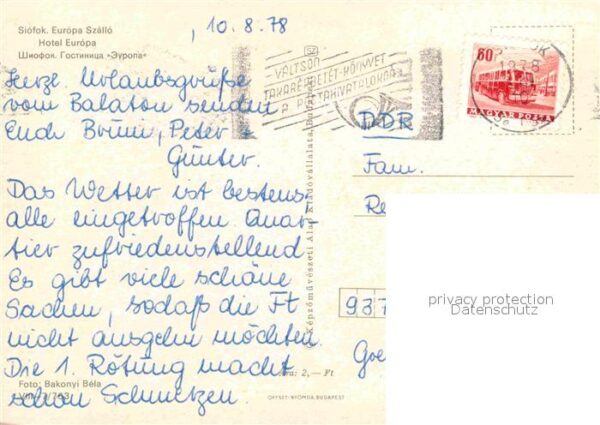 Siófok. Európa Szálló
Hotel Európa
Шиофок. Гостиница «Эуропа»
10.8.78
Herzl. Urlaubsgrüße
vom Balaton senden
Euch Bruni, Peter +
Günter.
Das Wetter ist bestens
alle eingetroffen. Quar-
tier zufriedenstellend
Es gibt viele schöne
Sachen, sodaß die Ft
nicht ausgehn möchten.
Die 1. Rötung macht
schon Schmerzen.
Foto: Bakonyi Béla
Képzőművészeti Alap Kiadóvállalata, Budapest
Ára: 2,– Ft
OFFSET-NYOMDA, BUDAPEST
VÁLTSON
TAKARÉKBETÉT-KÖNYVET
A POSTAHIVATALOKNÁL
60
MAGYAR POSTA
1978
DDR
Fam.
Re
937
Goe
privacy protection
Datenschutz